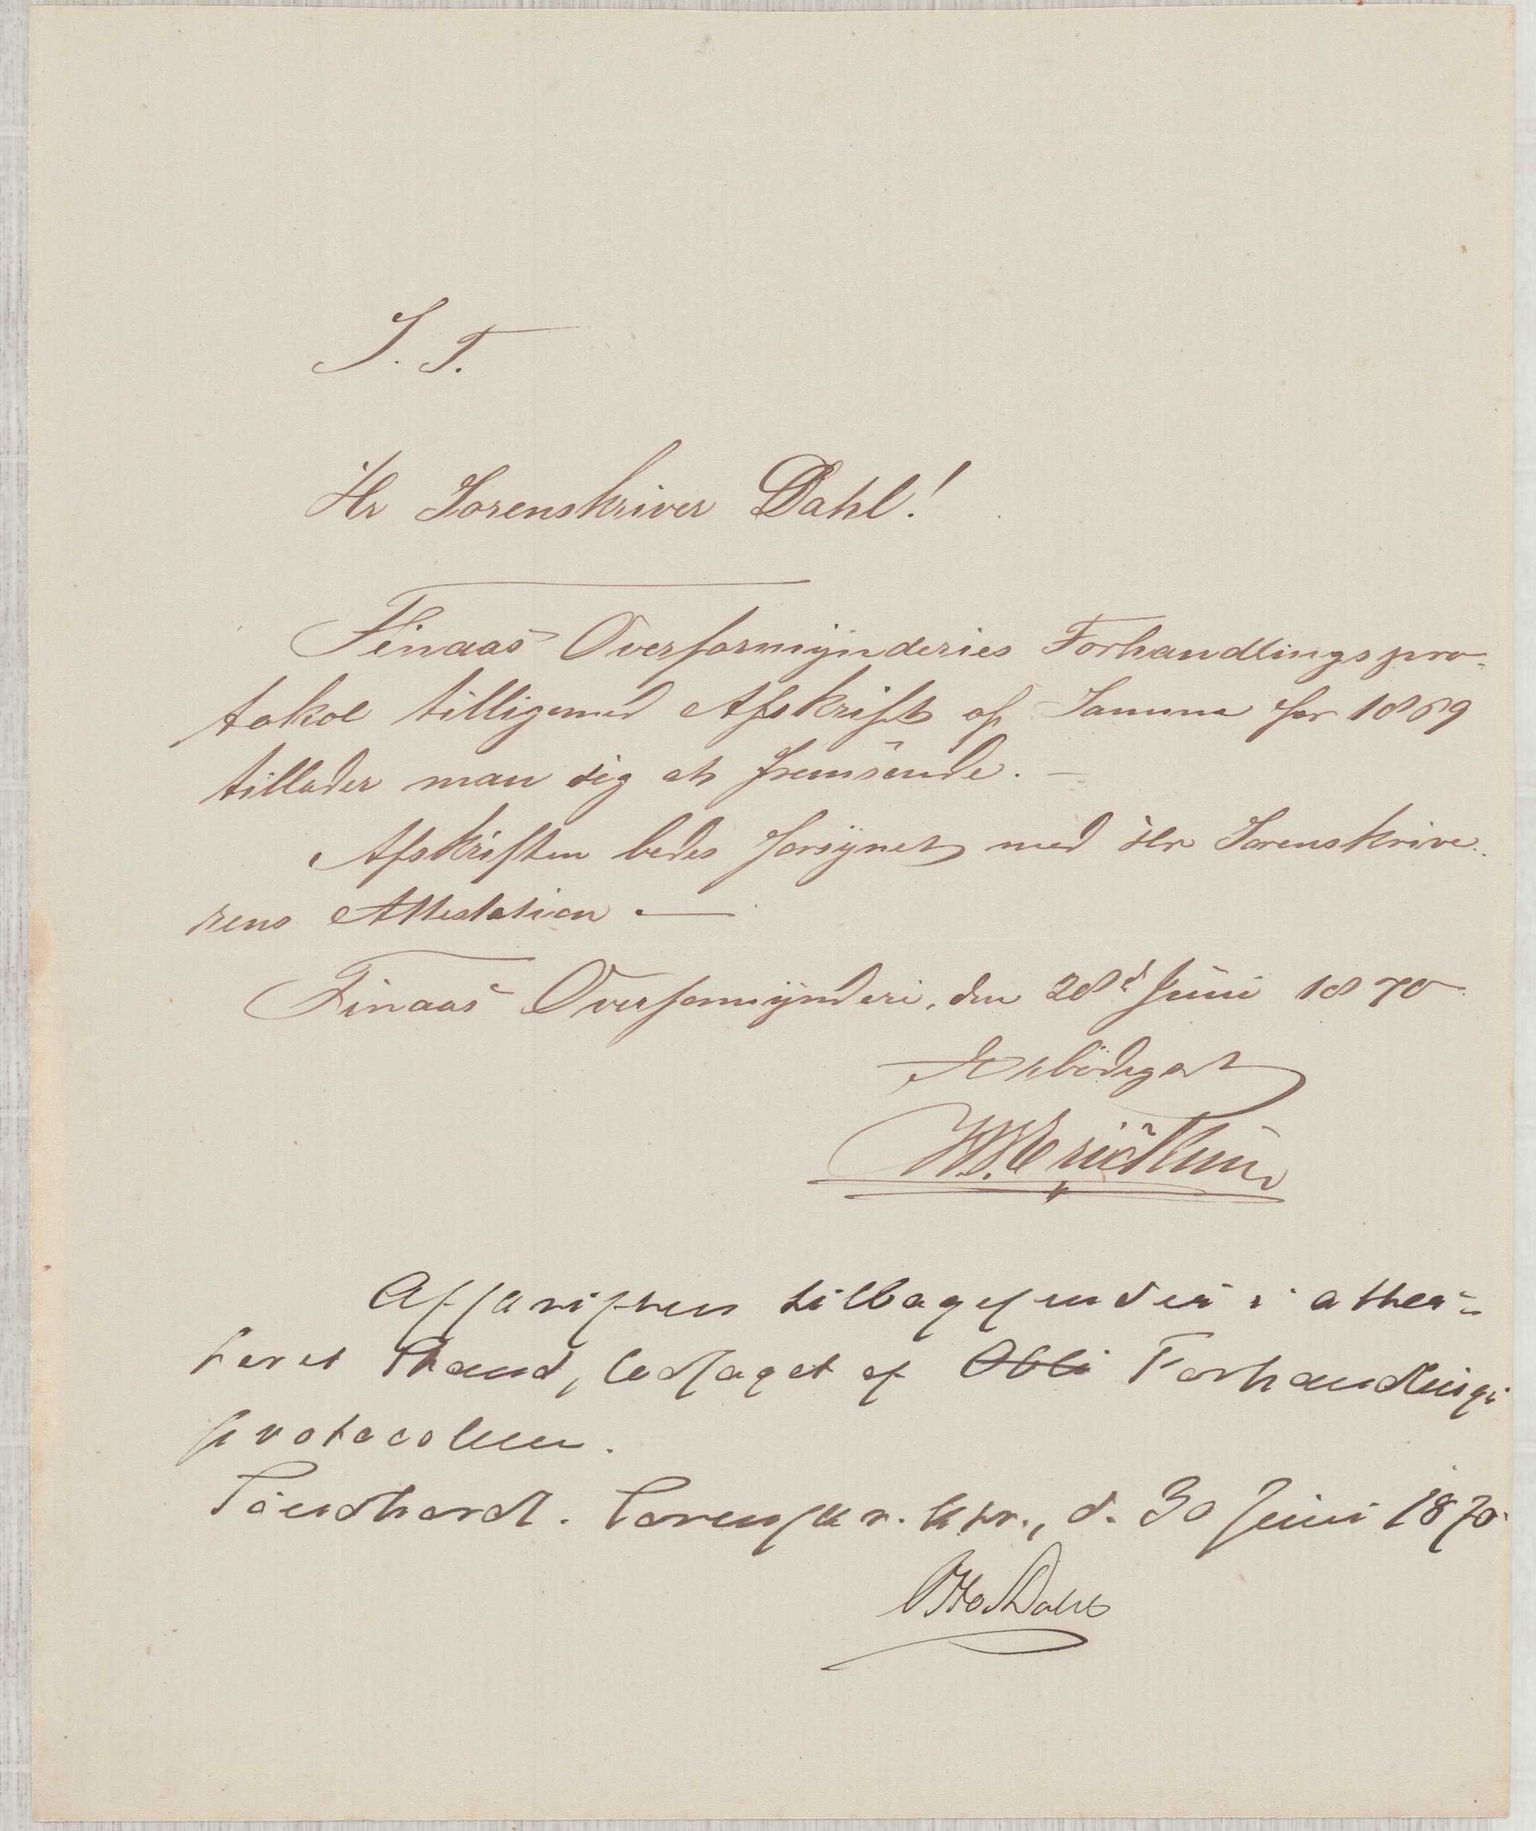 S. T.
Hr Sorenskriver Dahl!
Finaas Overformynderies Forhandlingspro-
tokol tilligemed Afskrift af Samme for 1869
tillader man sig at fremsende. —
Afskriften bedes forsynet med Hr Sorenskrive-
rens Attestation. —
Finaas Overformynderi, den 28d Juni 1870
Ærbødigst
Afskriften tilbagesendes i attes-
teret Stand, ledsaget af Obli Forhandlings
protocollen.
Søndhordl. Sorenskr. ktr., d. 30 Juni 1870
Otto Dahl